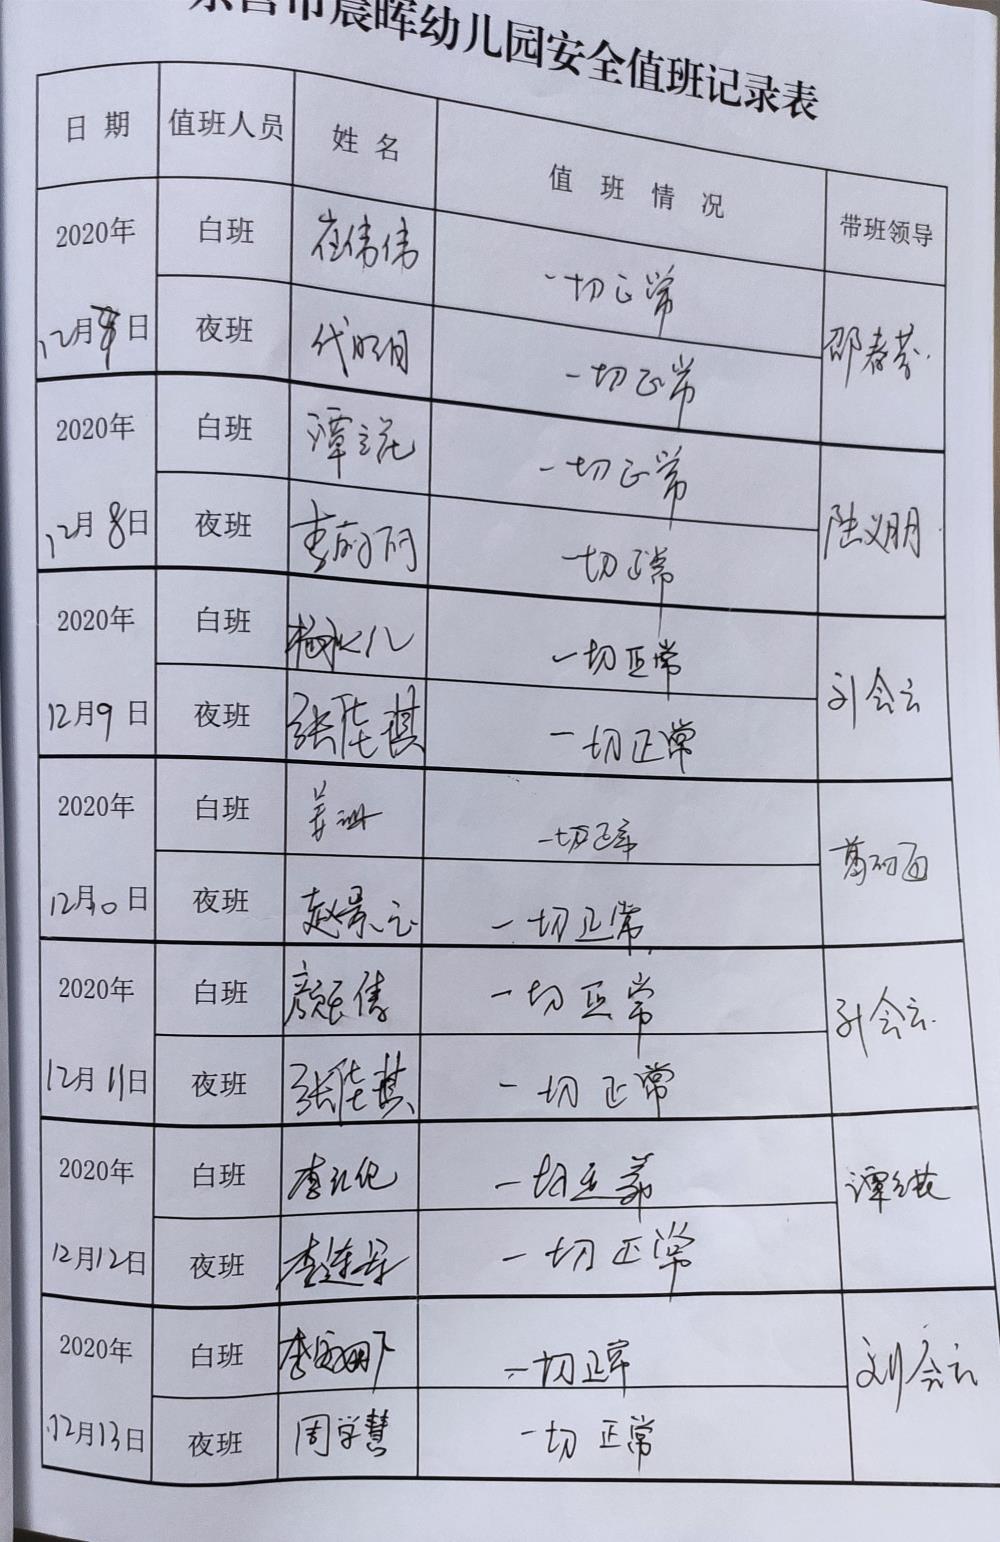 东营市晨晖幼儿园安全值班记录表
日期 值班人员 姓名 值班情况 带班领导
2020年 白班 崔伟伟 一切正常
12月 日 夜班 代明月 一切正常 邵春芬
2020年 白班 一切正常
12月8日 夜班 一切正常 陆义朋
2020年 白班 一切正常
12月9日 夜班 张佳琪 一切正常 刘会云
2020年 白班 姜 一切正常
12月10日 夜班 赵景 一切正常
2020年 白班 颜 倩 一切正常
12月11日 夜班 张佳琪 一切正常 会云
2020年 白班 李 一切正常 谭
12月12日 夜班 李连 一切正常
2020年 白班 李 一切正常 刘会云
12月13日 夜班 周学慧 一切正常